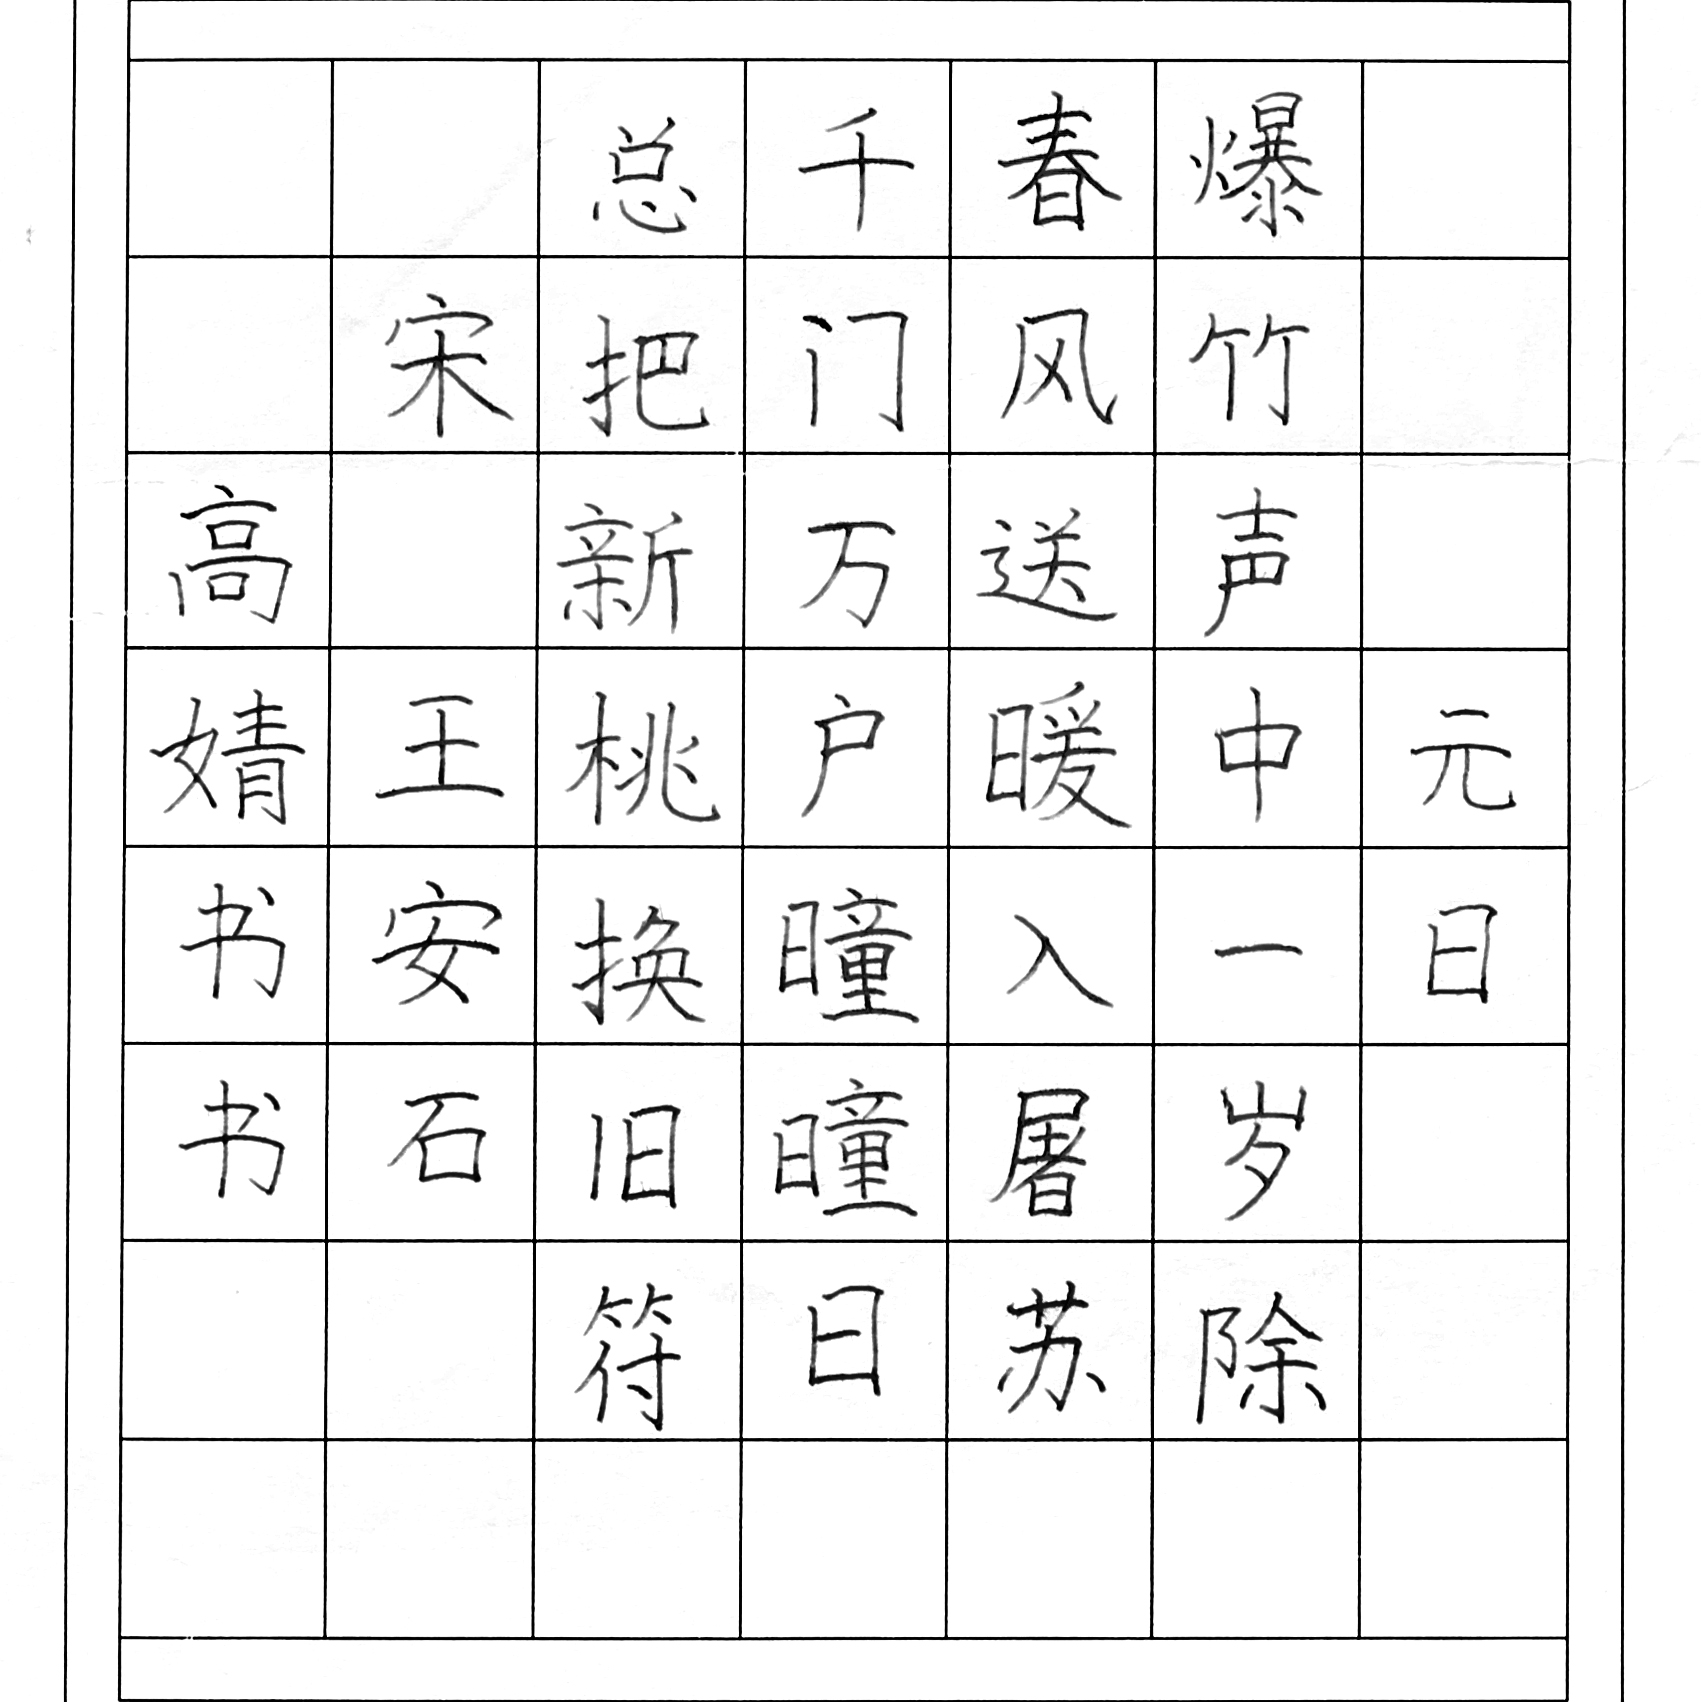 元日
爆竹声中一岁除
春风送暖入屠苏
千门万户曈曈日
总把新桃换旧符
宋 王安石
高婧书书